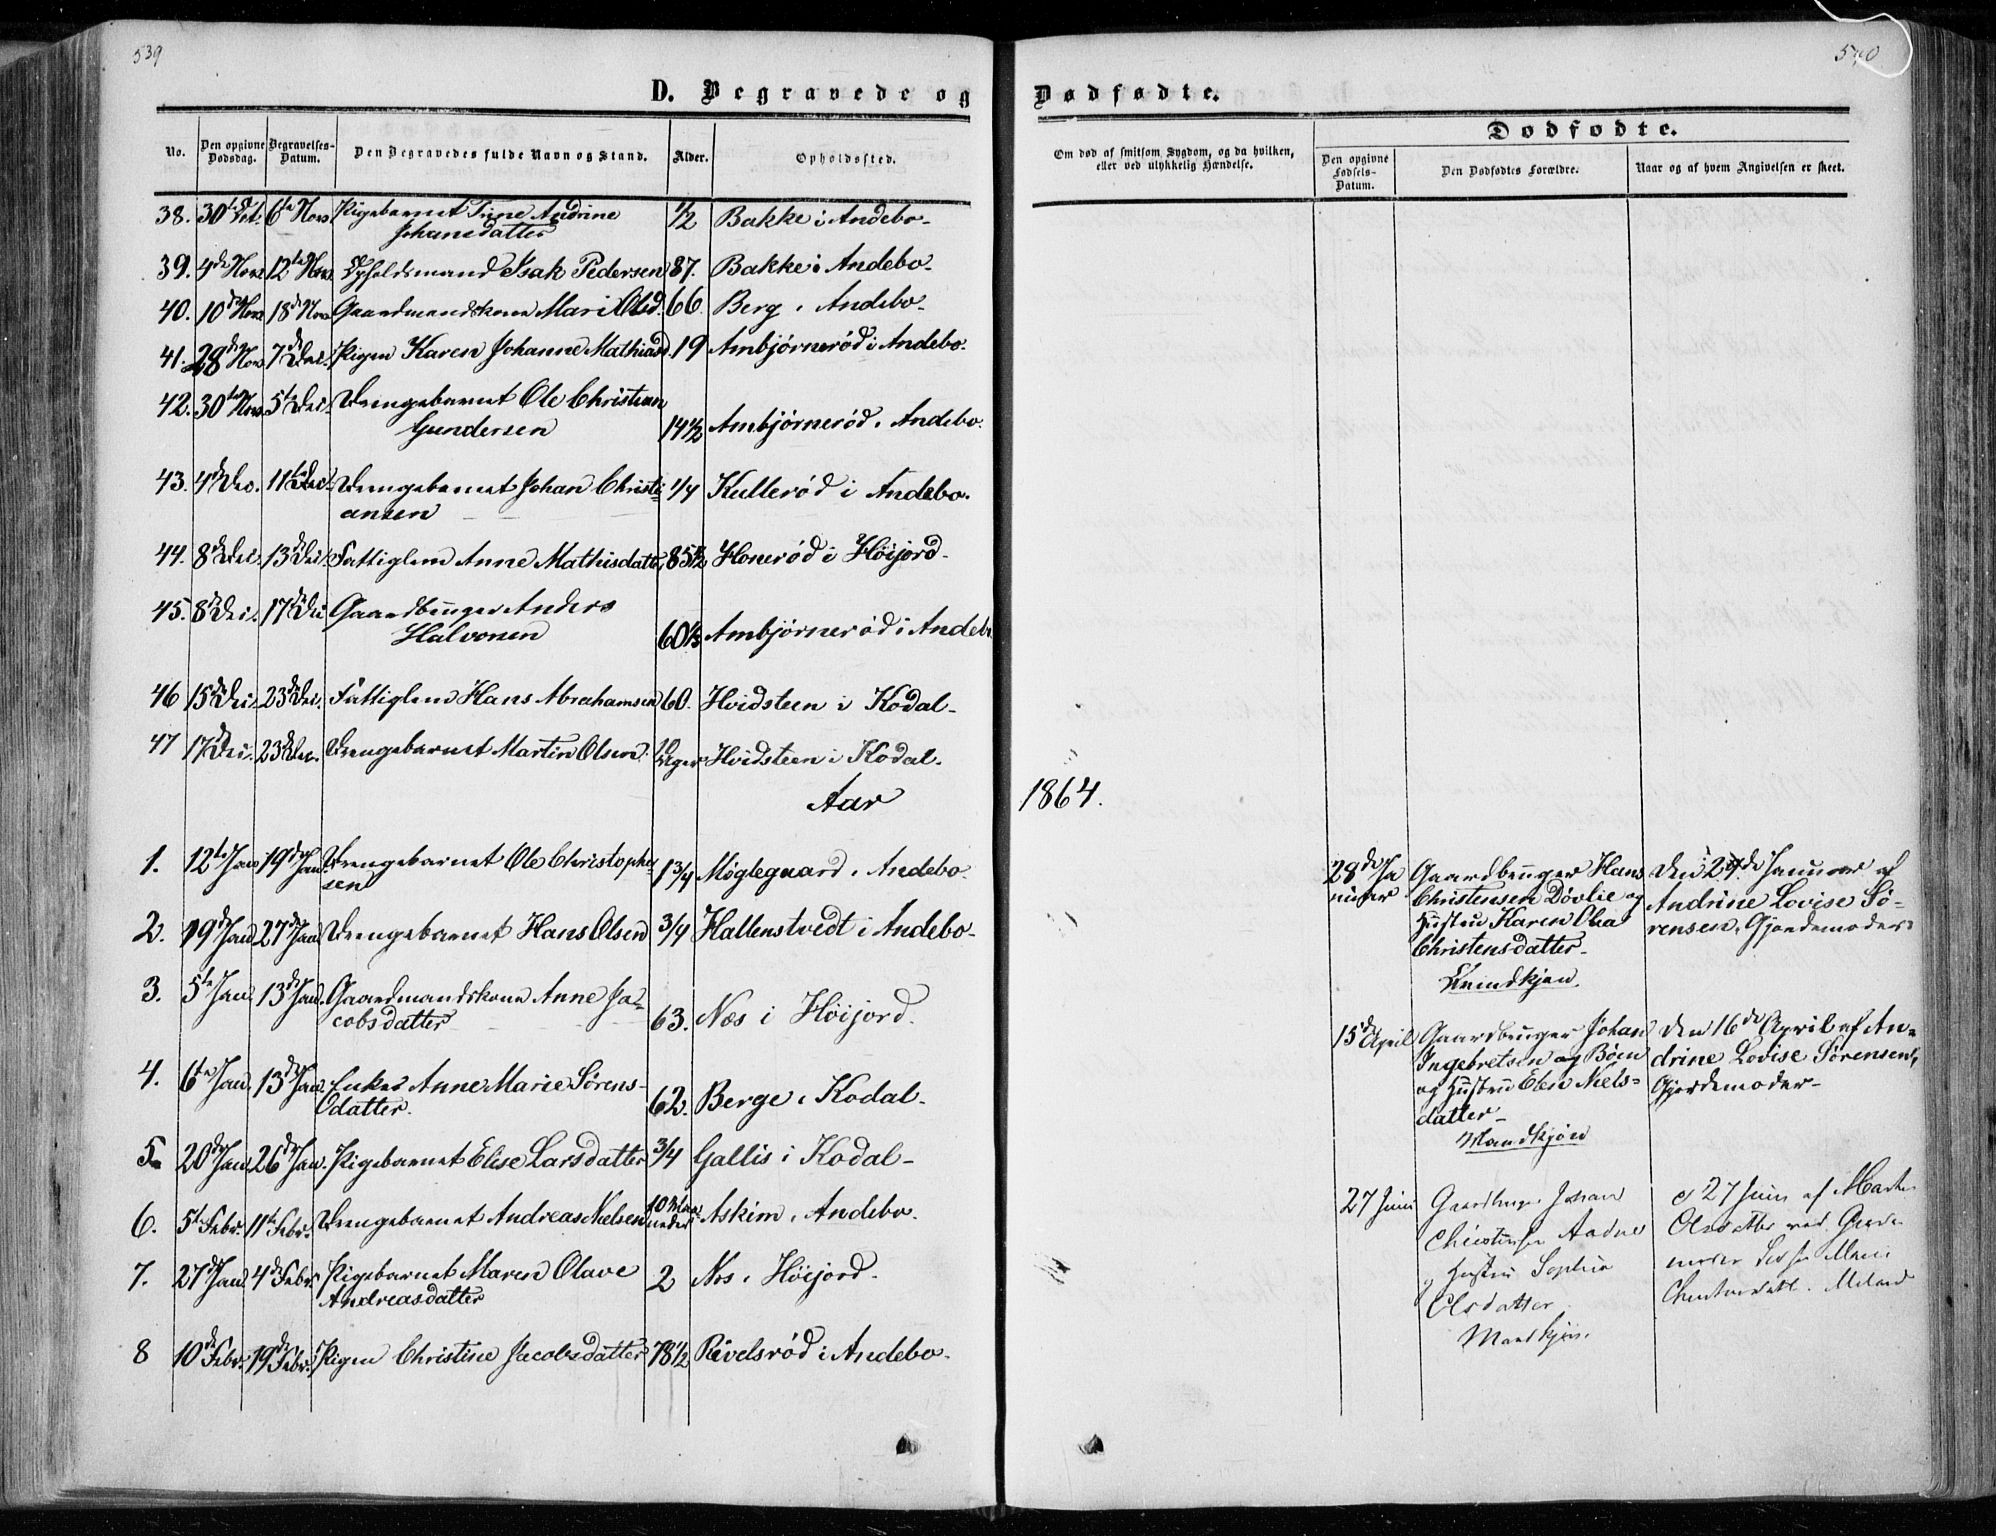 539
540
D. Begravede og Dødfødte.
No.
Den opgivne Dødsdag.
Begravelses-Datum.
Den Begravedes fulde Navn og Stand.
Alder.
Opholdssted.
Om død af smitsom Sygdom, og da hvilken, eller ved ulykkelig Hændelse.
Dødfødte.
Den opgivne Fødsels-Datum.
Den Dødfødtes Forældre.
Naar og af hvem Angivelsen er skeet.
38. 30te Oct. 6te Nov. Pigebarnet Trine Andrine 1/2 Bakke i Andebo.
Johansdatter
39. 4de Nov. 12te Nov. Opholdsmand Isak Pedersen 87. Bakke i Andebo.
40. 10de Nov. 18de Nov. Gaardmandskone Mari Olsd. 66. Berg i Andebo.
41. 28de Nov. 7de Dec. Pigen Karen Johanne Mathiasd. 19 Ambjørnerød i Andebo.
42. 30te Nov. 5te Dec. Drengebarnet Ole Christian
Gundersen 14 1/2 Ambjørnerød i Andebo.
43. 4de Dec. 11te Dec. Drengebarnet Johan Christi- 1/4 Kullerød i Andebo.
ansen
44. 8de Dec. 13de Dec. Fattiglem Anne Mathisdatt. 85 1/2 Honerød i Höijord.
45. 8de Dec. 17de Dec. Gaardbruger Anders
Halvorsen 60 1/3 Ambjørnerød i Andebo
46 15de Dec. 23de Dec. Fattiglem Hans Abrahamsen 60. Hvidsteen i Kodal.
47 17de Dec. 23de Dec. Drengebarnet Martin Olsen. 10 Uger Hvidsteen i Kodal.
Aar 1864.
1. 12te Jan 19de Jan. Drengebarnet Ole Christopher-
sen 1 3/4 Møglegaard i Andebo.
2. 19de Jan 27de Jan. Drengebarnet Hans Olsen 3/4 Hallenstvedt i Andebo.
3. 5te Jan 13de Jan. Gaardmandskone Anne Ja-
cobsdatter 63. Næs i Höijord.
4. 6te Jan 13de Jan. Enke Anne Marie Sörens-
datter. 62. Berge i Kodal.
5. 20de Jan 26de Jan. Pigebarnet Elise Larsdatter 3/4 Gallis i Kodal.
6. 5te Febr. 11te Febr. Drengebarnet Andreas Nielsen 10 Maaneder Askim i Andebo.
7. 27de Jan. 4de Febr. Pigebarnet Maren Olave 2 Næs i Höijord.
Andreasdatter
8 10de Febr. 19de Febr. Pigen Christine Jacobsdatter 78 1/2 Rivelsrød i Andebo.
28de Ja
nuar
Gaardbruger Hans
Christensen Døvlie og
Hustru Karen Olea
Christensdatter.
Kvindkjøn.
Den 29de Januar af
Andrine Lovise Sö-
rensen, Gjordemoder.
15de April
Gaardbruger Johan
Ingebretsen og Böen
og Hustru Elen Niels-
datter
Mandkjøn
Den 16de April af An-
drine Lovise Sörensen,
Gjordemoder.
27 Juni
Gaardbruger Johan
Christensen Aadne
og Hustru Sophie
Olsdatter
Mandkjøn.
d 27 Juni af Marthe
Olsdatter
moder